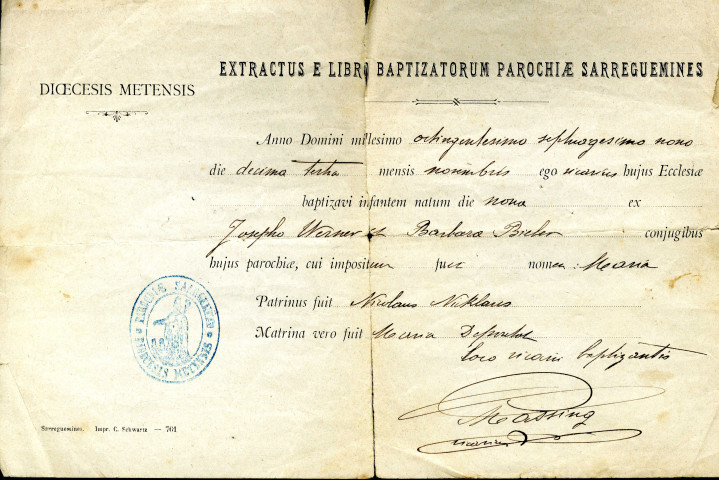 EXTRACTUS E LIBRO BAPTIZATORUM PAROCHIÆ SARREGUEMINES
DIŒCESIS METENSIS
Anno Domini millesimo octingentesimo septuagesimo nono
die decima tertia mensis novembris ego vicarius hujus Ecclesiæ
baptizavi infantem natum die nona ex
Josepho Werner et Barbara Bieber conjugibus
hujus parochiæ, cui impositum fuit nomen: Maria
Patrinus fuit Nicolaus Nicklaus
Matrina vero fuit Maria
loco vicarii baptizantis
Massing
vicarius
Sarreguemines. Impr. C. Schwartz — 761